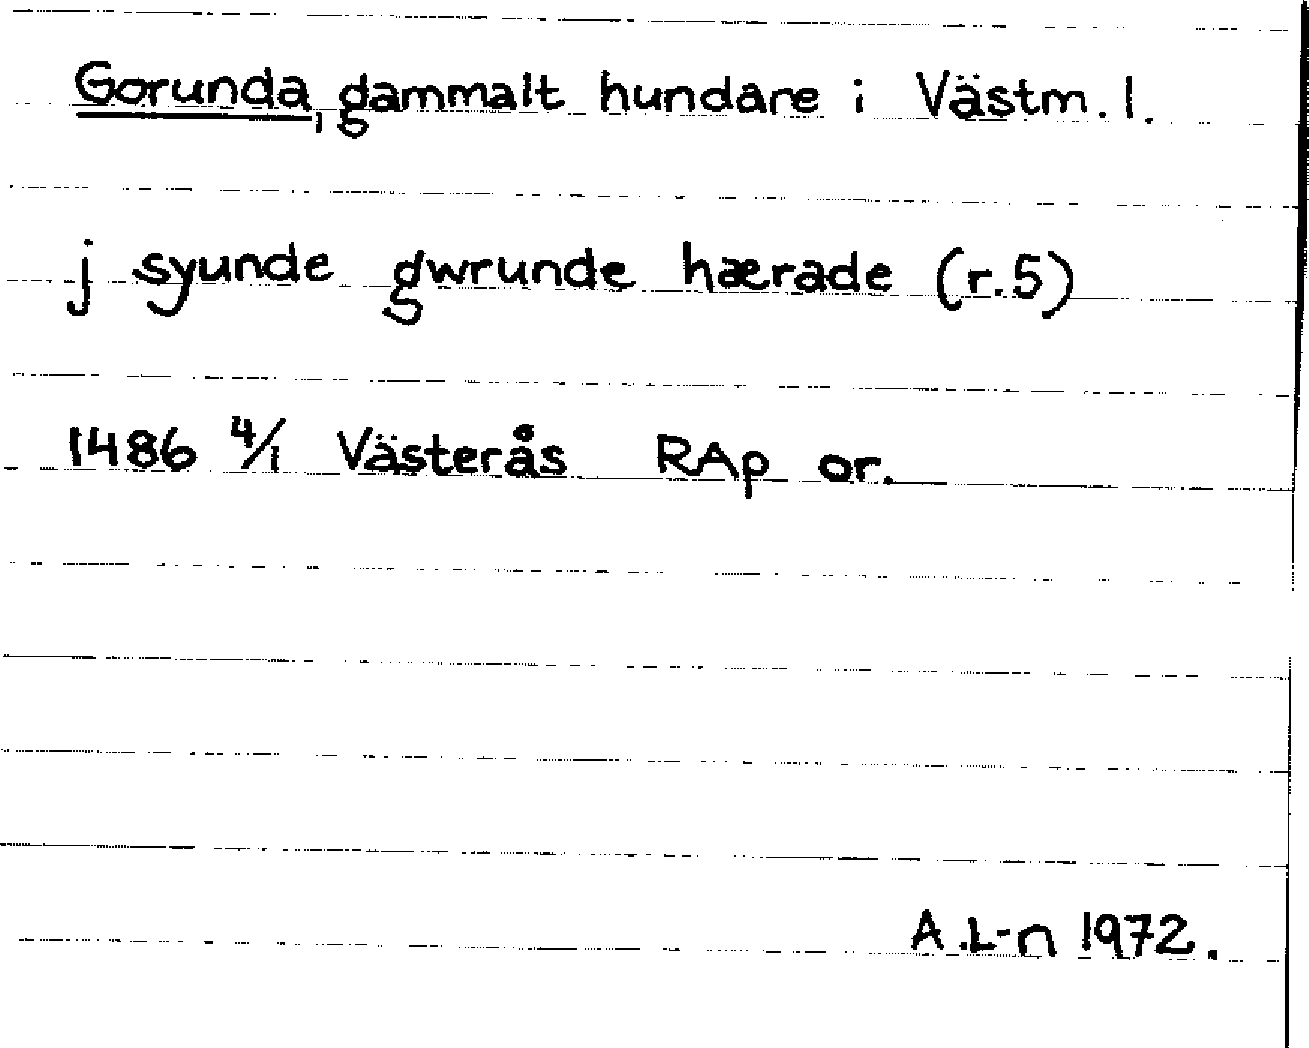 Gorunda, gammalt hundare i Västm. l.
j syunde gwrunde hærade (r.5)
1486 4/1 Västerås RAp or.
A.L-n 1972.